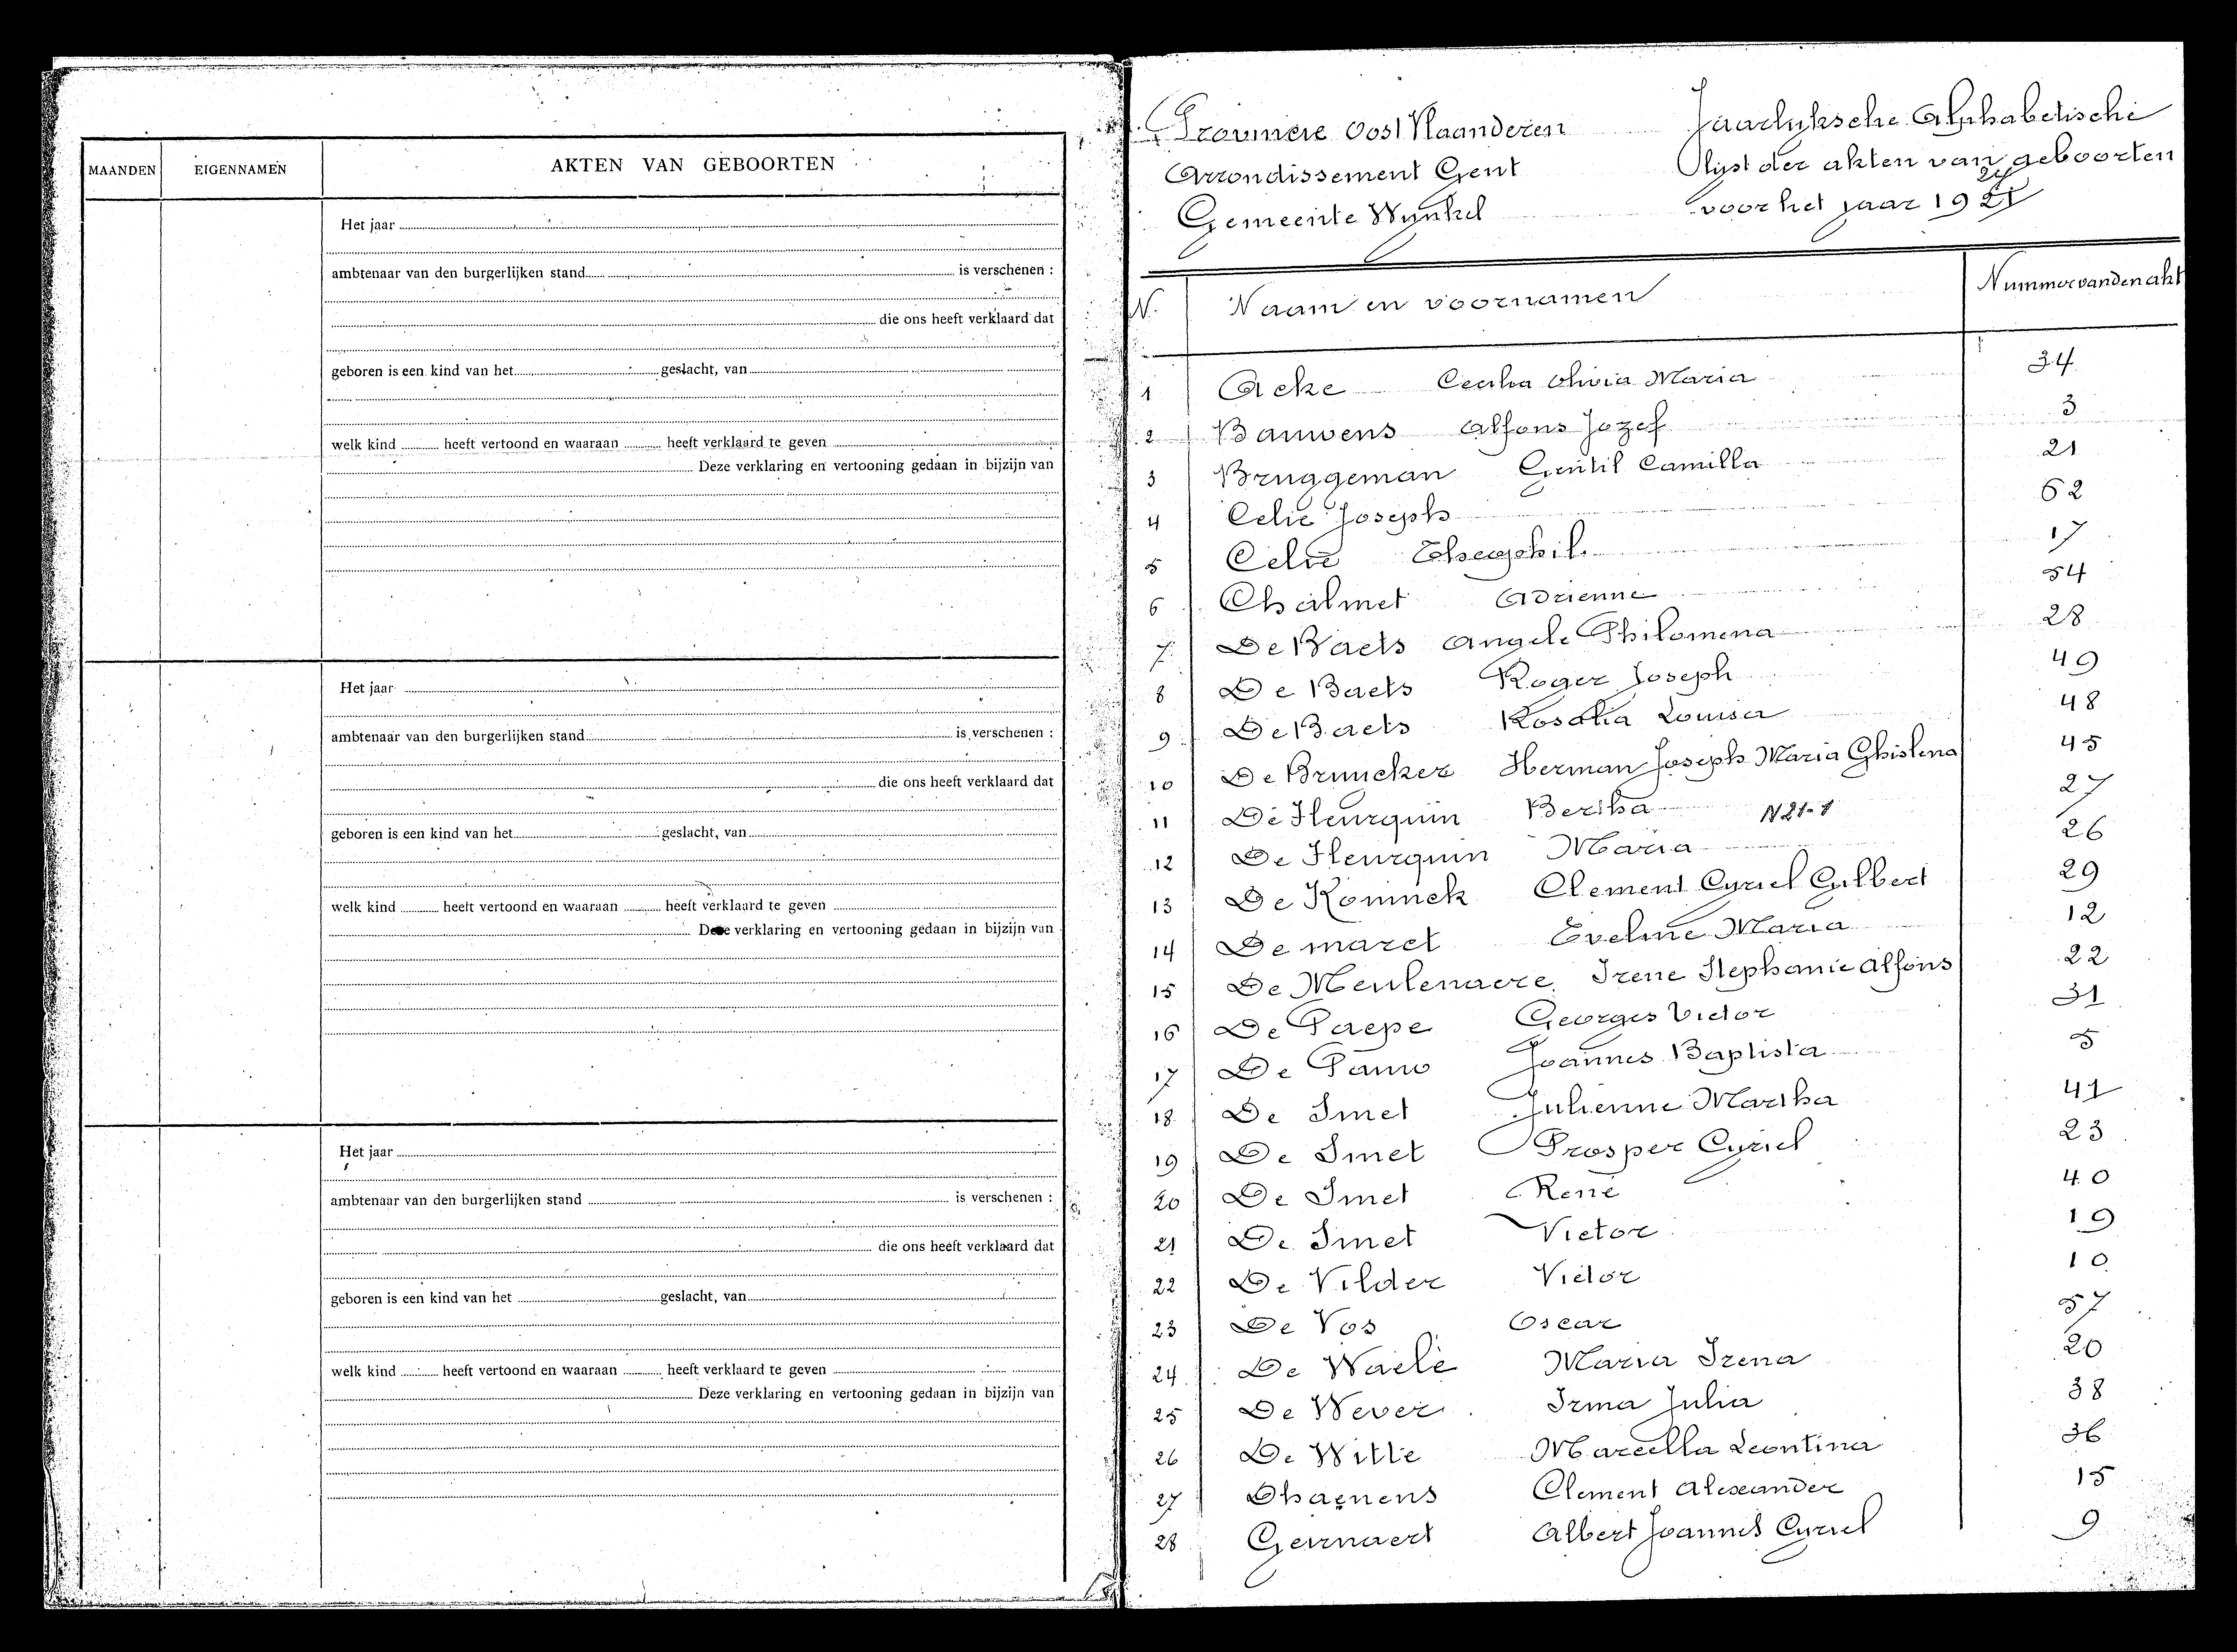 MAANDEN EIGENNAMEN AKTEN VAN GEBOORTEN
Het jaar
ambtenaar van den burgerlijken stand is verschenen :
die ons heeft verklaard dat
geboren is een kind van het geslacht, van
welk kind heeft vertoond en waaraan heeft verklaard te geven
Deze verklaring en vertooning gedaan in bijzijn van
Het jaar
ambtenaar van den burgerlijken stand is verschenen :
die ons heeft verklaard dat
geboren is een kind van het geslacht, van
welk kind heeft vertoond en waaraan heeft verklaard te geven
Deze verklaring en vertooning gedaan in bijzijn van
Het jaar
ambtenaar van den burgerlijken stand is verschenen :
die ons heeft verklaard dat
geboren is een kind van het geslacht, van
welk kind heeft vertoond en waaraan heeft verklaard te geven
Deze verklaring en vertooning gedaan in bijzijn van
Provincie Oost Vlaanderen
Arrondissement Gent
Gemeente Wynkel
Jaarlyksche Alphabetische
lijst der akten van geboorten
voor het jaar 1921
N. Naam en voornamen Nummer van den akt
1 Acke Cecilia Olivia Maria 34
2 Bauwens Alfons Jozef 3
3 Bruggeman Gentil Camilla 21
4 Celie Joseph 62
5 Celie Theophil 17
6 Chalmet Adrienne 54
7 De Baets Angele Philomena 28
8 De Baets Roger Joseph 49
9 De Baets Rosalia Louisa 48
10 De Bruycker Herman Joseph Maria Ghislena 45
11 De Fleurquin Bertha N 21-1 27
12 De Fleurquin Maria 26
13 De Koninck Clement Cyriel Gilbert 29
14 De maret Eveline Maria 12
15 De Meulenaere Irene Stephanie Alfons 22
16 De Paepe Georges Victor 31
17 De Pauw Joannes Baptista 5
18 De Smet Julienne Martha 41
19 De Smet Prosper Cyriel 23
20 De Smet René 40
21 De Smet Victor 19
22 De Vilder Victor 10
23 De Vos Oscar 57
24 De Waele Maria Irena 20
25 De Wever Irma Julia 38
26 De Witte Marcella Leontina 36
27 Dhaenens Clement Alexander 15
28 Geirnaert Albert Joannes Cyriel 9